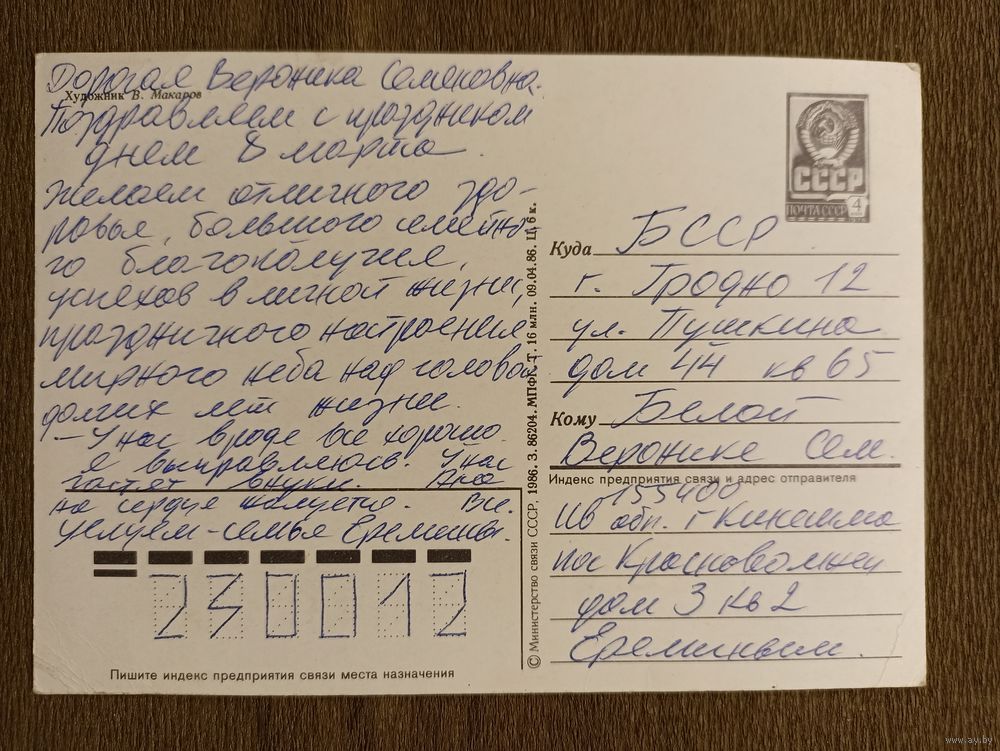 Дорогая Вероника Семеновна.
Художник В. Макаров
Поздравляем с праздником
днем 8 марта.
Желаем отличного здо-
ровья, большого семейно
го благополучия,
успехов в личной жизни,
праздничного настроения
мирного неба над головой
долгих лет жизни.
– У нас вроде все хорошо.
я выправляюсь. У нас
гостят внуки.
на сердце жалуется. Все.
целуем - семья Еремины.
230012
Пишите индекс предприятия связи места назначения
© Министерство связи СССР, 1986. З. 86204. МПФГ. Т. 16 млн. 09.04.86. Ц. 6 к.
СССР
ПОЧТА СССР 4
Куда БССР
г. Гродно 12
ул. Пушкина
дом 44 кв 65
Кому Белой
Веронике Сем.
Индекс предприятия связи и адрес отправителя
155400
Ив обл. г Кинешма
пос Красноволжец
дом 3 кв 2
Ереминым.
www.ay.by